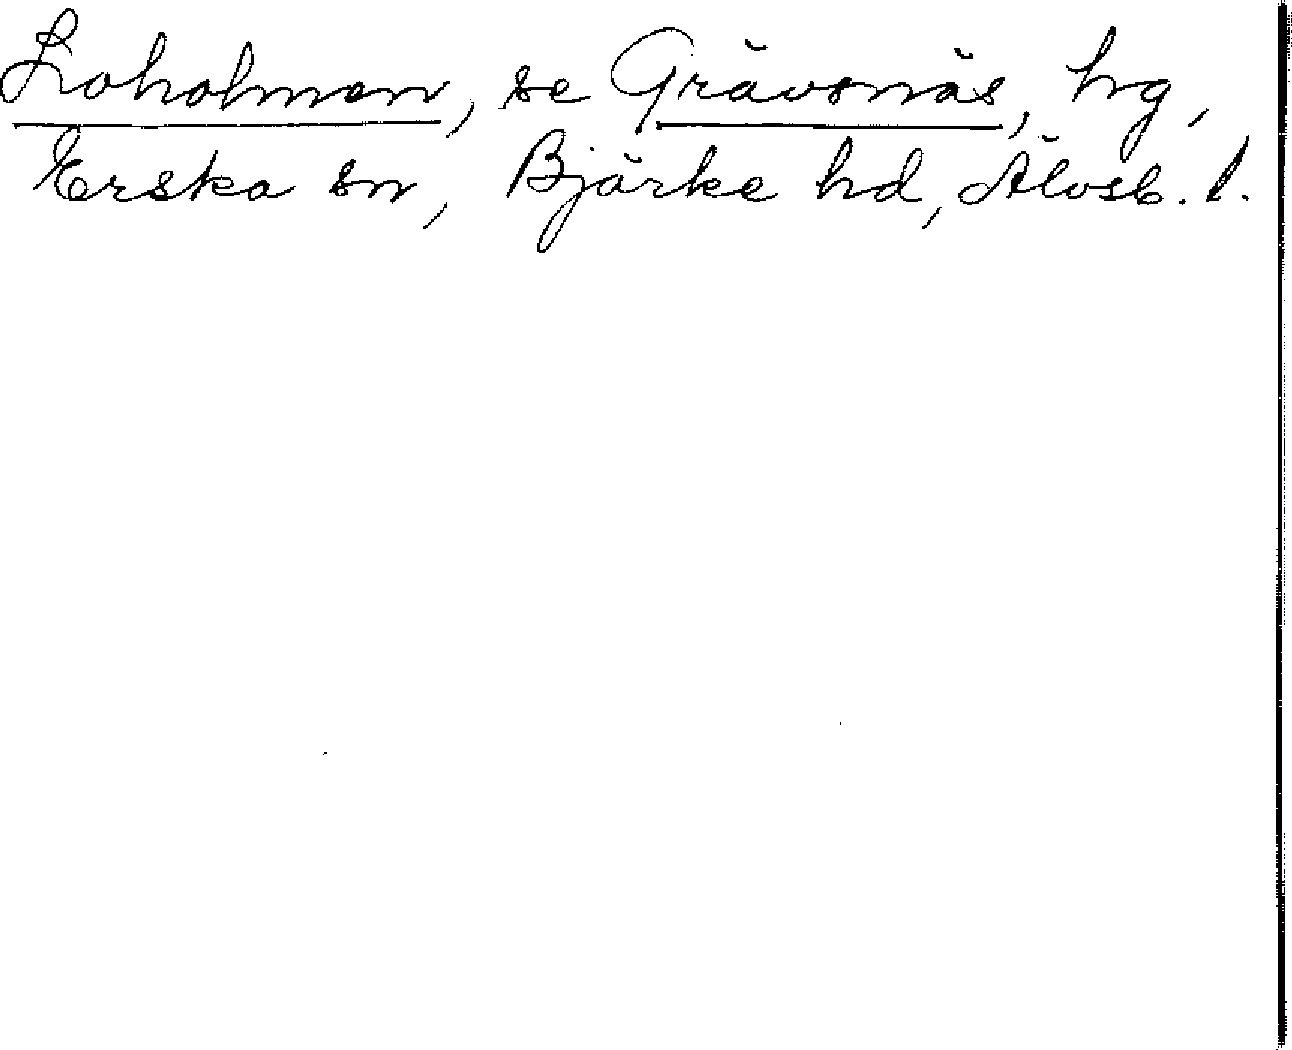 Loholmen, se Grävsnäs, hg,
Erska sn, Bjärke hd, Älvsb. l.